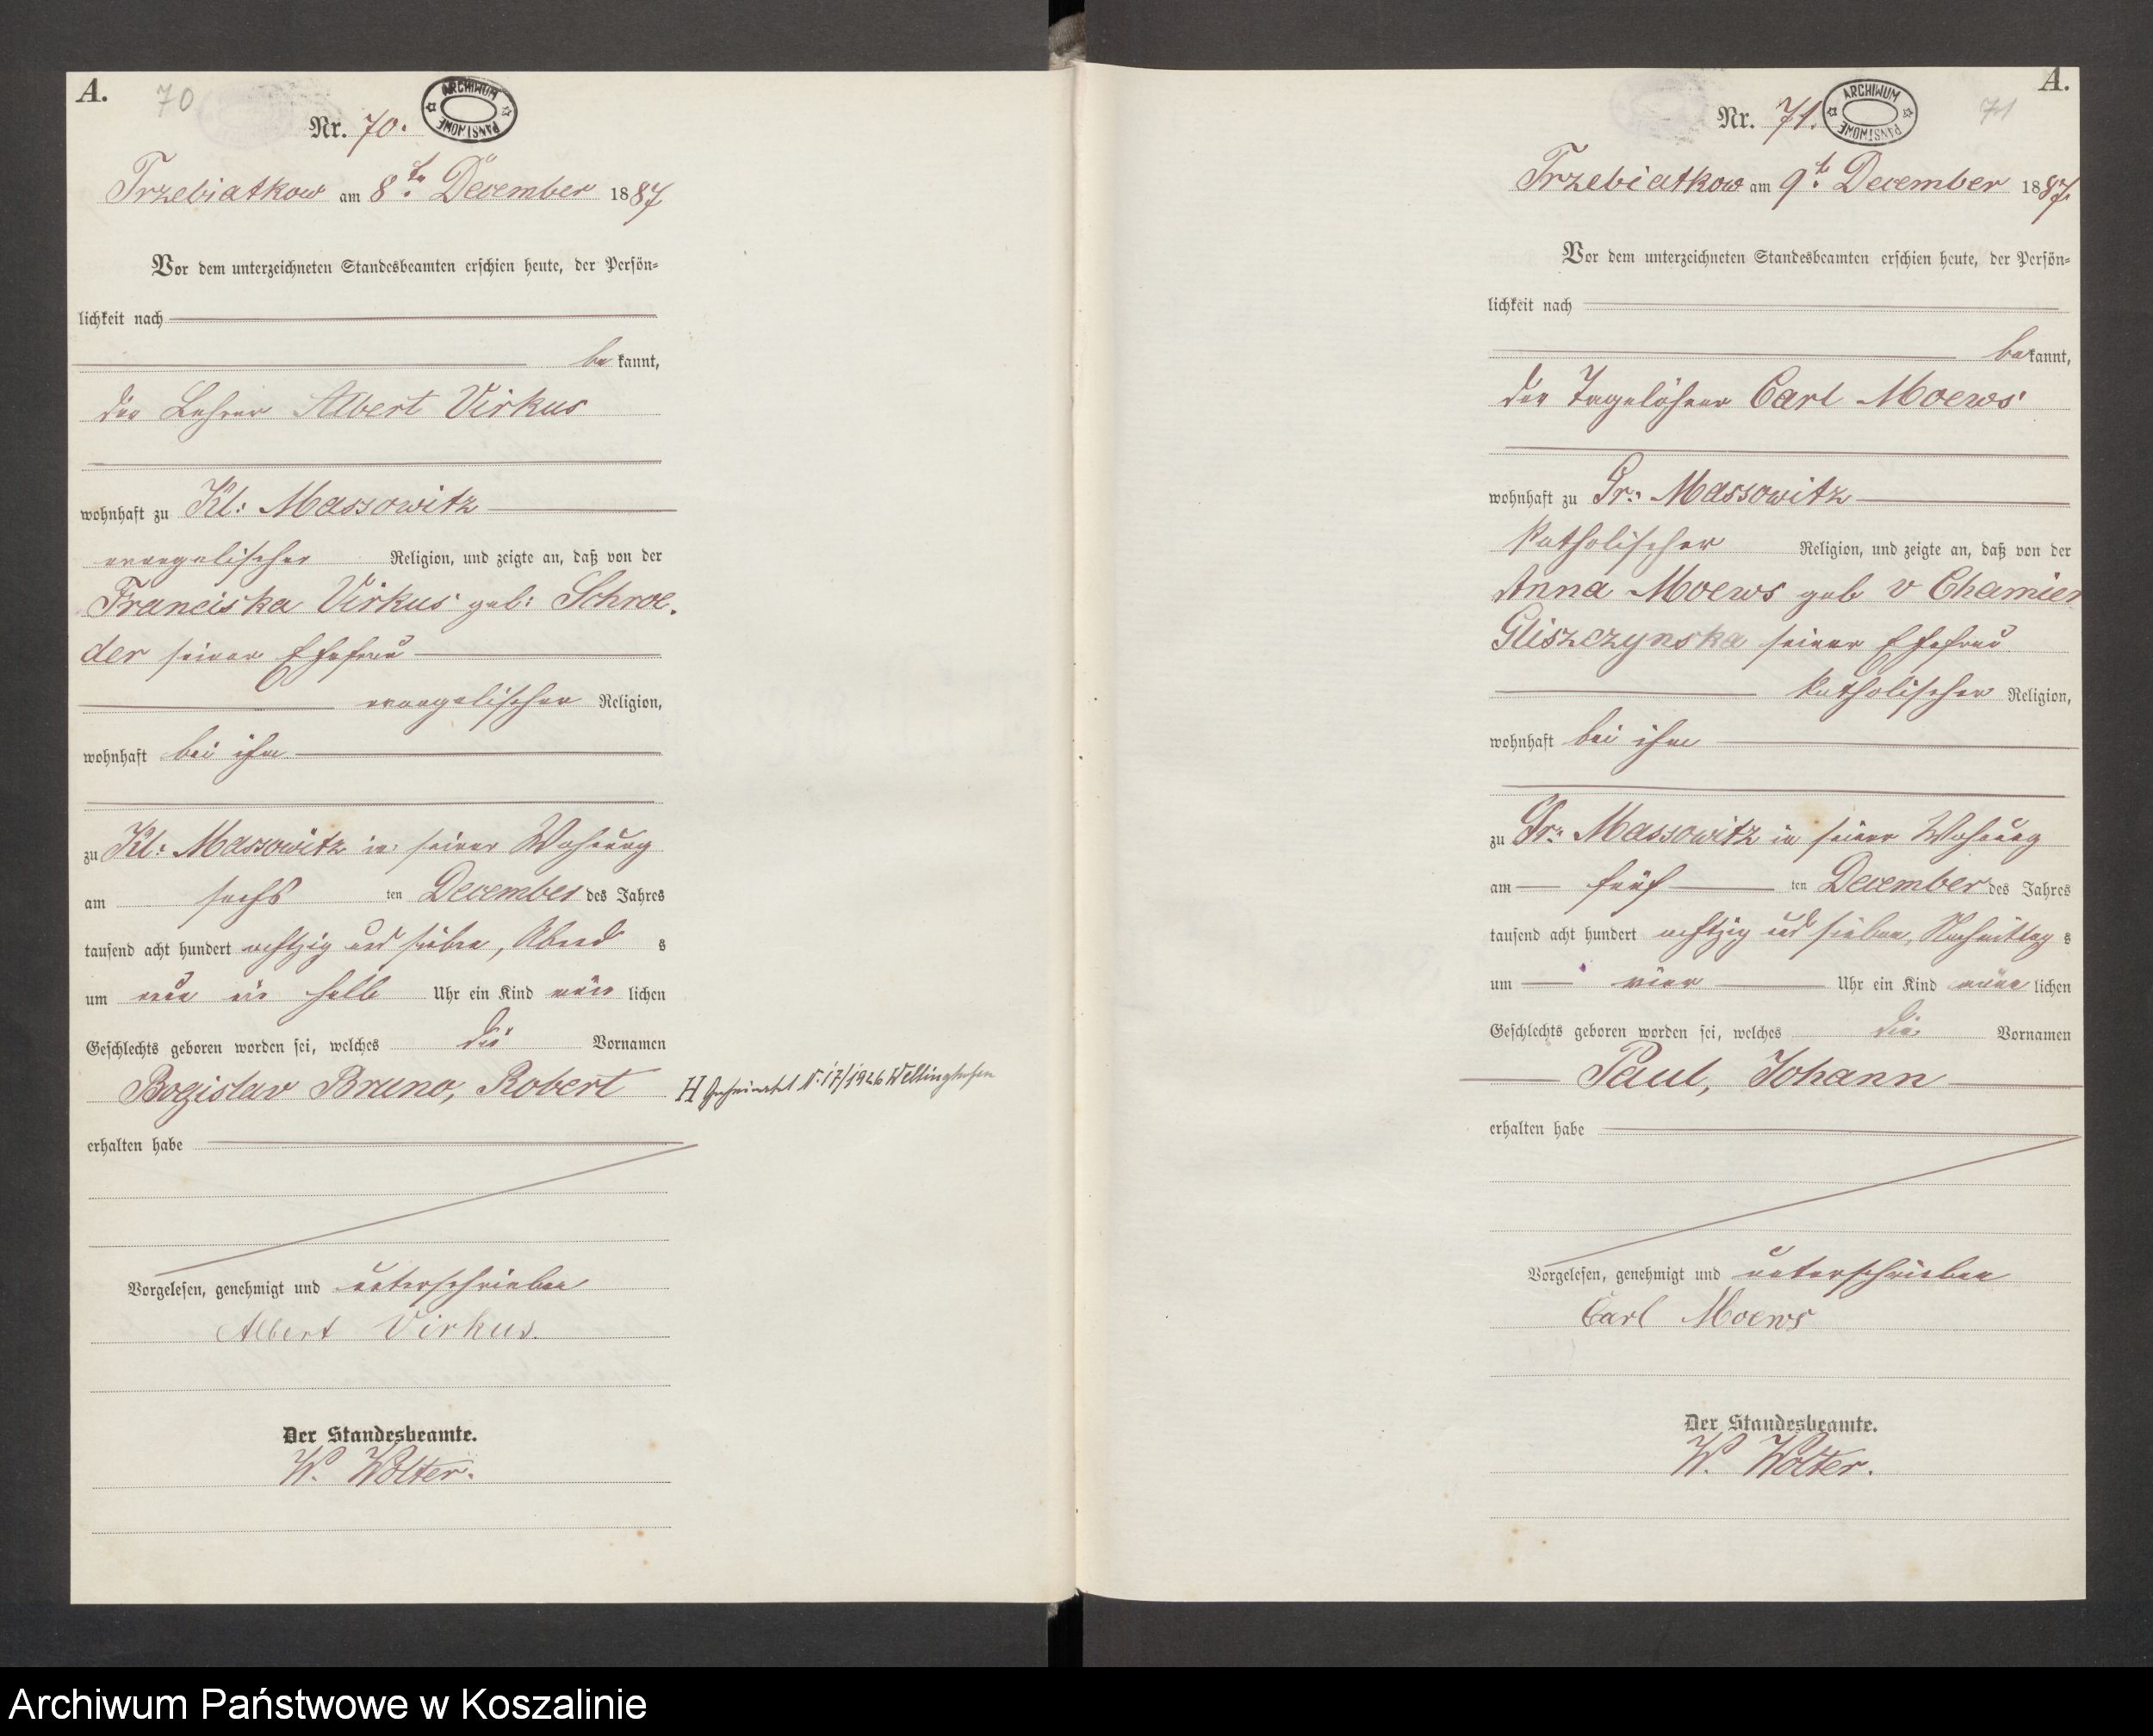 A.
70
ARCHIWUM PAŃSTWOWE
Nr. 70.
Trzebiatkow am 8ten December 1887
Vor dem unterzeichneten Standesbeamten erschien heute, der Persön=
lichkeit nach
be kannt,
der Lehrer Albert Virkus
wohnhaft zu Kl: Massowitz
evangelischer Religion, und zeigte an, daß von der
Franciska Virkus geb: Schroe-
der seiner Ehefrau
evangelischer Religion,
wohnhaft bei ihm
zu Kl: Massowitz in seiner Wohnung
am sechs ten December des Jahres
tausend acht hundert achtzig und sieben, Abend s
um ein halb Uhr ein Kind män lichen
Geschlechts geboren worden sei, welches die Vornamen
Bogislav Bruno, Robert
H Geheiratet N. 17/1926 Wellinghofen
erhalten habe
Vorgelesen, genehmigt und unterschrieben
Albert Virkus.
Der Standesbeamte.
W. Wolter.
A.
71
ARCHIWUM PAŃSTWOWE
Nr. 71.
Trzebiatkow am 9t. December 1887.
Vor dem unterzeichneten Standesbeamten erschien heute, der Persön=
lichkeit nach
bekannt,
der Tagelöhner Carl Moews
wohnhaft zu Gr: Massowitz
katholischer Religion, und zeigte an, daß von der
Anna Moews geb v Chamier
Gliszczynska seiner Ehefrau
katholischer Religion,
wohnhaft bei ihm
zu Gr: Massowitz in seiner Wohnung
am fünf ten December des Jahres
tausend acht hundert achtzig und sieben, Nachmittag s
um vier Uhr ein Kind männ lichen
Geschlechts geboren worden sei, welches die Vornamen
Paul, Johann
erhalten habe
Vorgelesen, genehmigt und unterschrieben
Carl Moews
Der Standesbeamte.
W. Wolter.
Archiwum Państwowe w Koszalinie